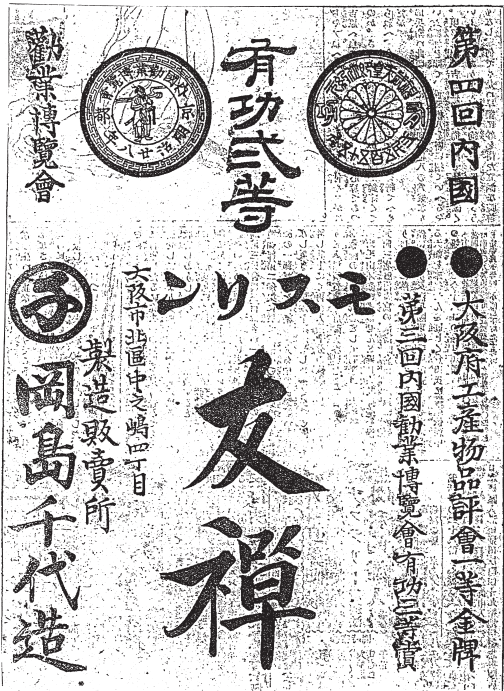 第四回内國
有功弐等
京都
明治廿八年
勸業博覽會
大阪府工産物品評會一等金牌
第三回内國勸業博覽會有功三等賞
モスリン
友禪
大阪市北區中之嶋四丁目
製造販賣所
子
岡島千代造